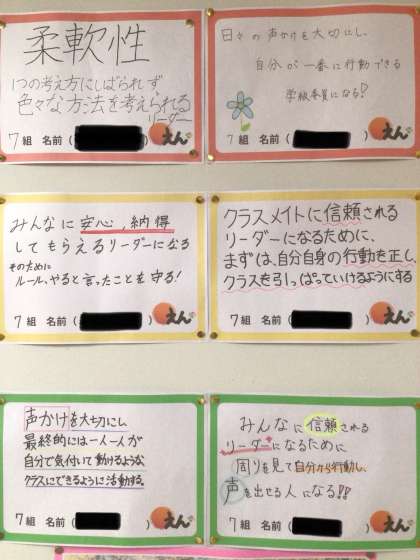 柔軟性
1つの考え方にしばられず
色々な方法を考えられる
リーダー
7組 名前( )
えん
日々の声かけを大切にし、
自分が一番に行動できる
学級委員になる!
7組 名前( )
えん
みんなに安心、納得
してもらえるリーダーになる
そのために
ルール、やると言ったことを守る!
7組 名前( )
えん
クラスメイトに信頼される
リーダーになるために、
まずは、自分自身の行動を正し、
クラスを引っぱっていけるようにする
7組 名前( )
えん
声かけを大切にし
最終的には一人一人が
自分で気付いて動けるような
クラスにできるように活動する。
7組 名前( )
えん
みんなに信頼される
リーダーになるために
周りを見て自分から行動し、
声を出せる人になる!!
7組 名前( )
えん